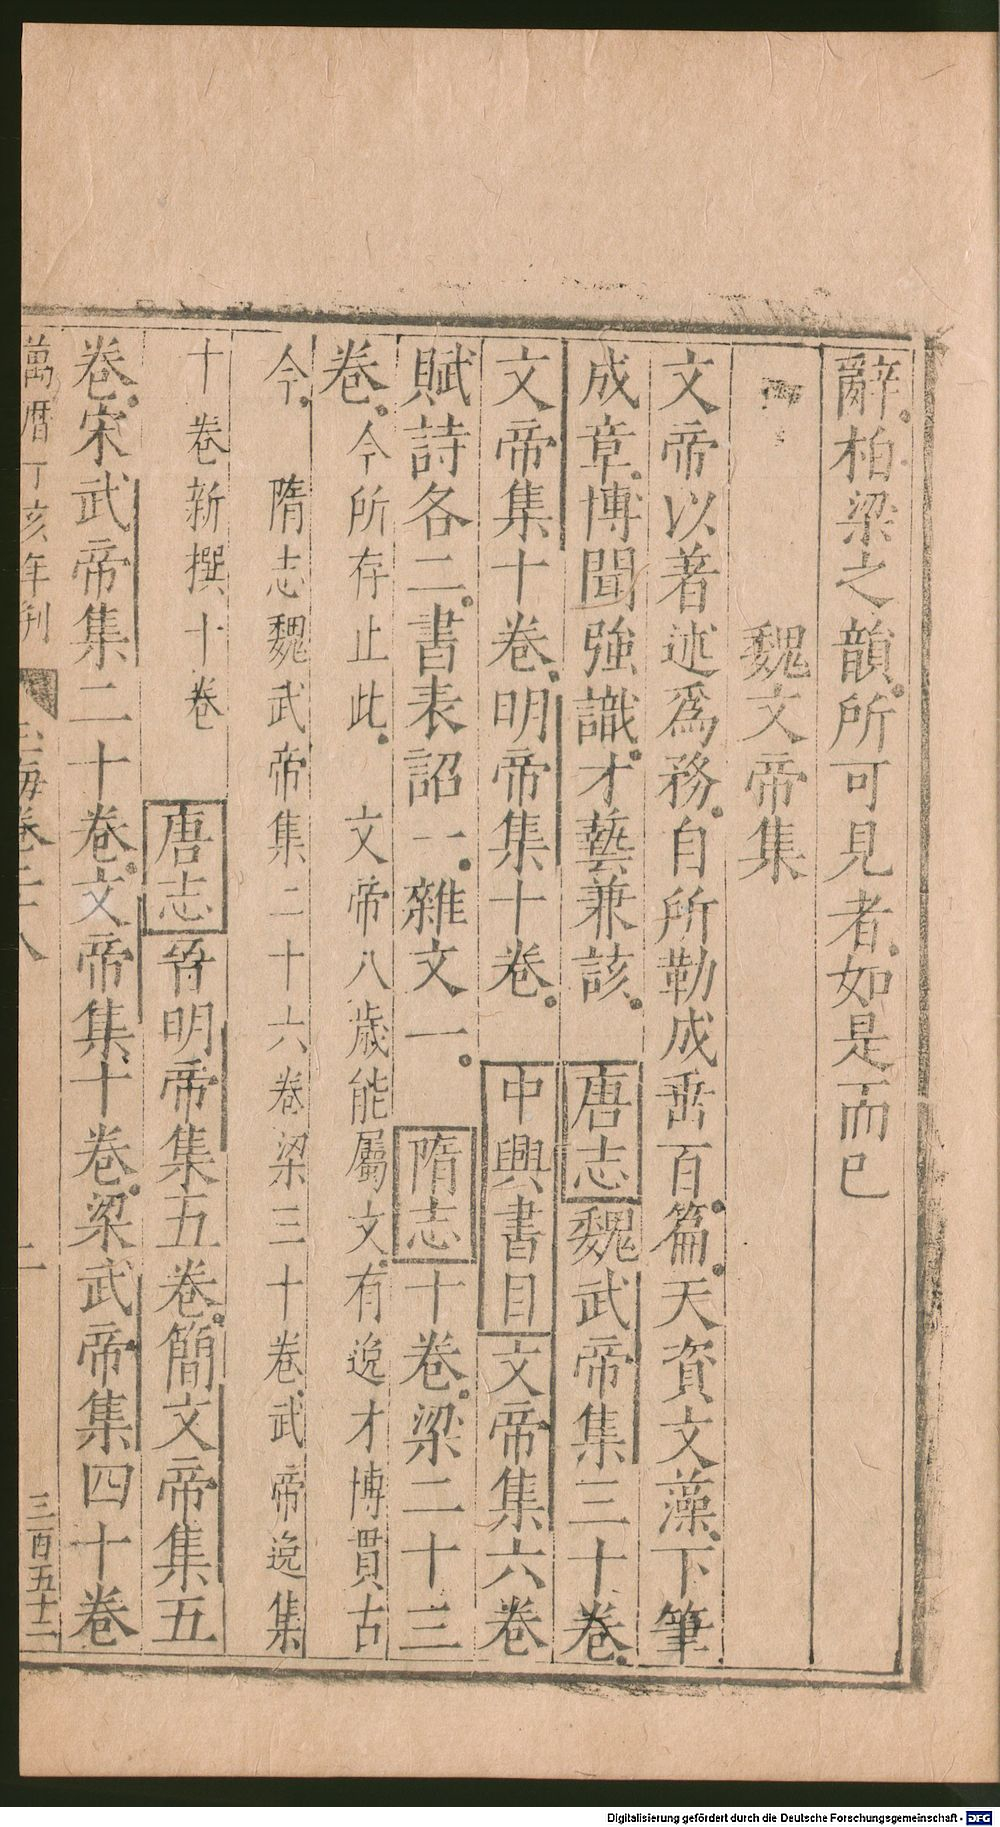 辭柏梁之韻所可見者如是而已
魏文帝集
文帝以著述爲務自所勒成垂百篇天資文藻下筆
成章博聞強識才藝兼該唐志魏武帝集三十卷
文帝集十卷明帝集十卷中興書目文帝集六卷
賦詩各二書表詔一雜文一隋志十卷梁二十三
卷今所存止此 文帝八歲能屬文有逸才博貫古
今 隋志魏武帝集二十六卷梁三十卷武帝逸集
十卷新撰十卷 唐志晉明帝集五卷簡文帝集五
卷宋武帝集二十卷文帝集十卷梁武帝集四十卷
萬曆丁亥年刊 玉海卷二十八 二 三百五十二
Digitalisierung gefördert durch die Deutsche Forschungsgemeinschaft - DFG